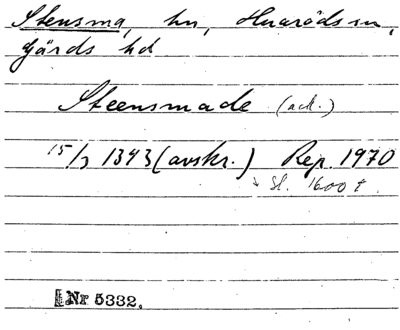 Stensma, hn, Huaröds sn,
Gärds hd
Steensmade (ack.)
15/3 1393 (avskr.) Rep. 1970
↘ Sl. 1600 t.
Nr 5332.